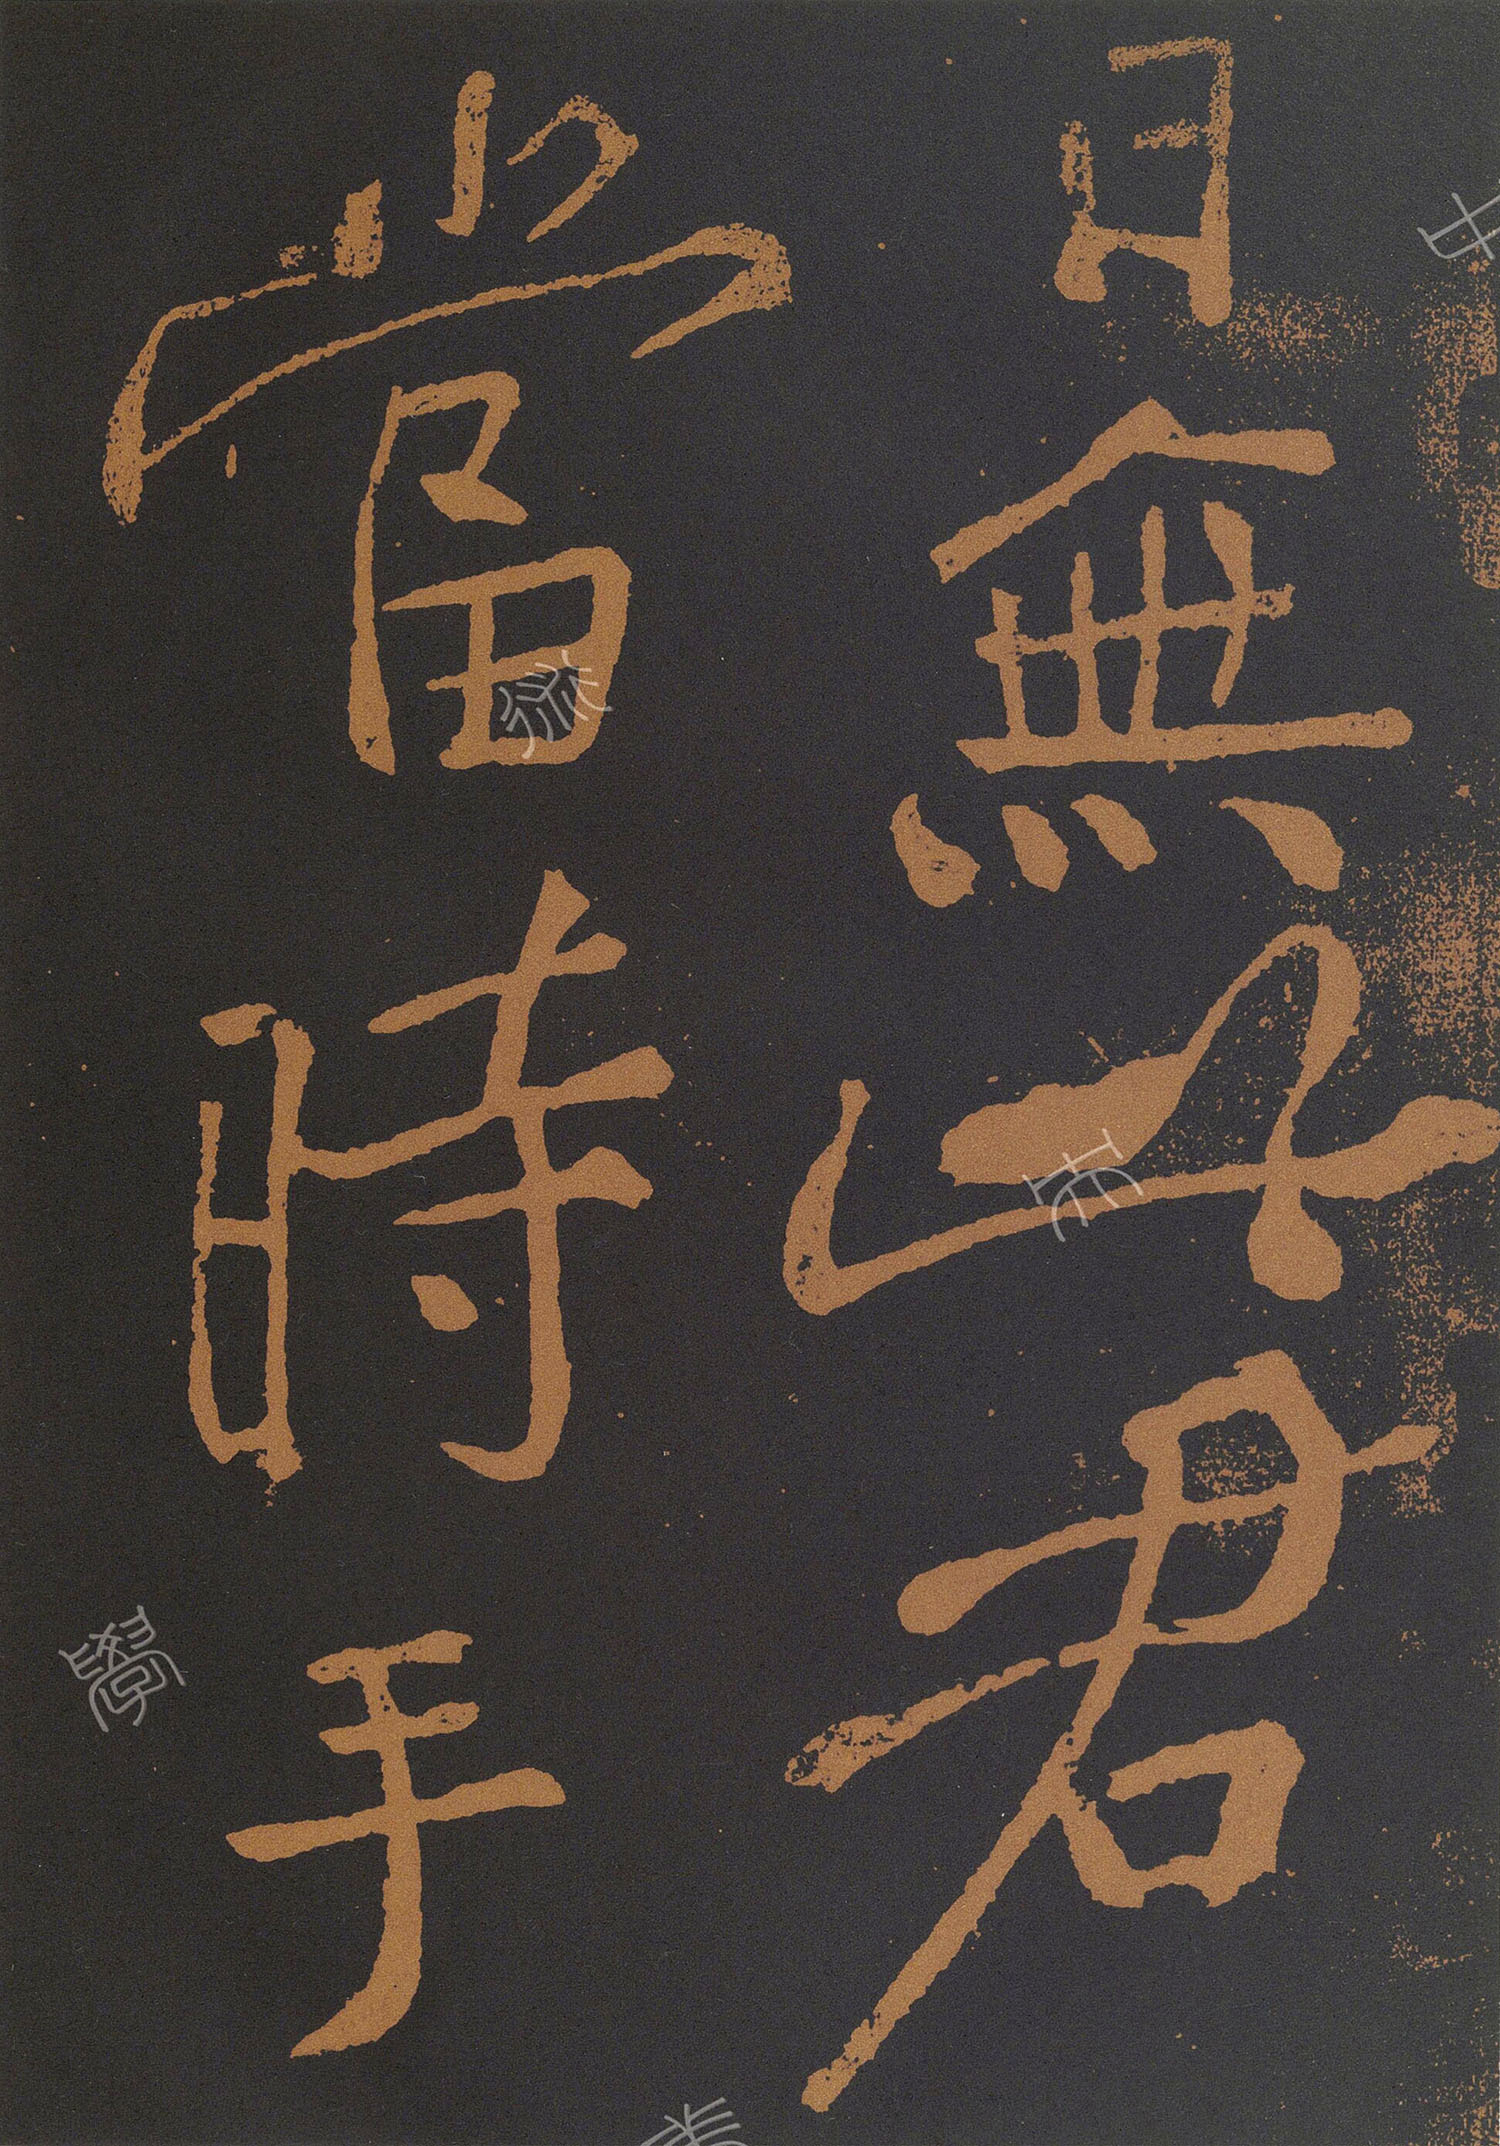 日無此君
當時手